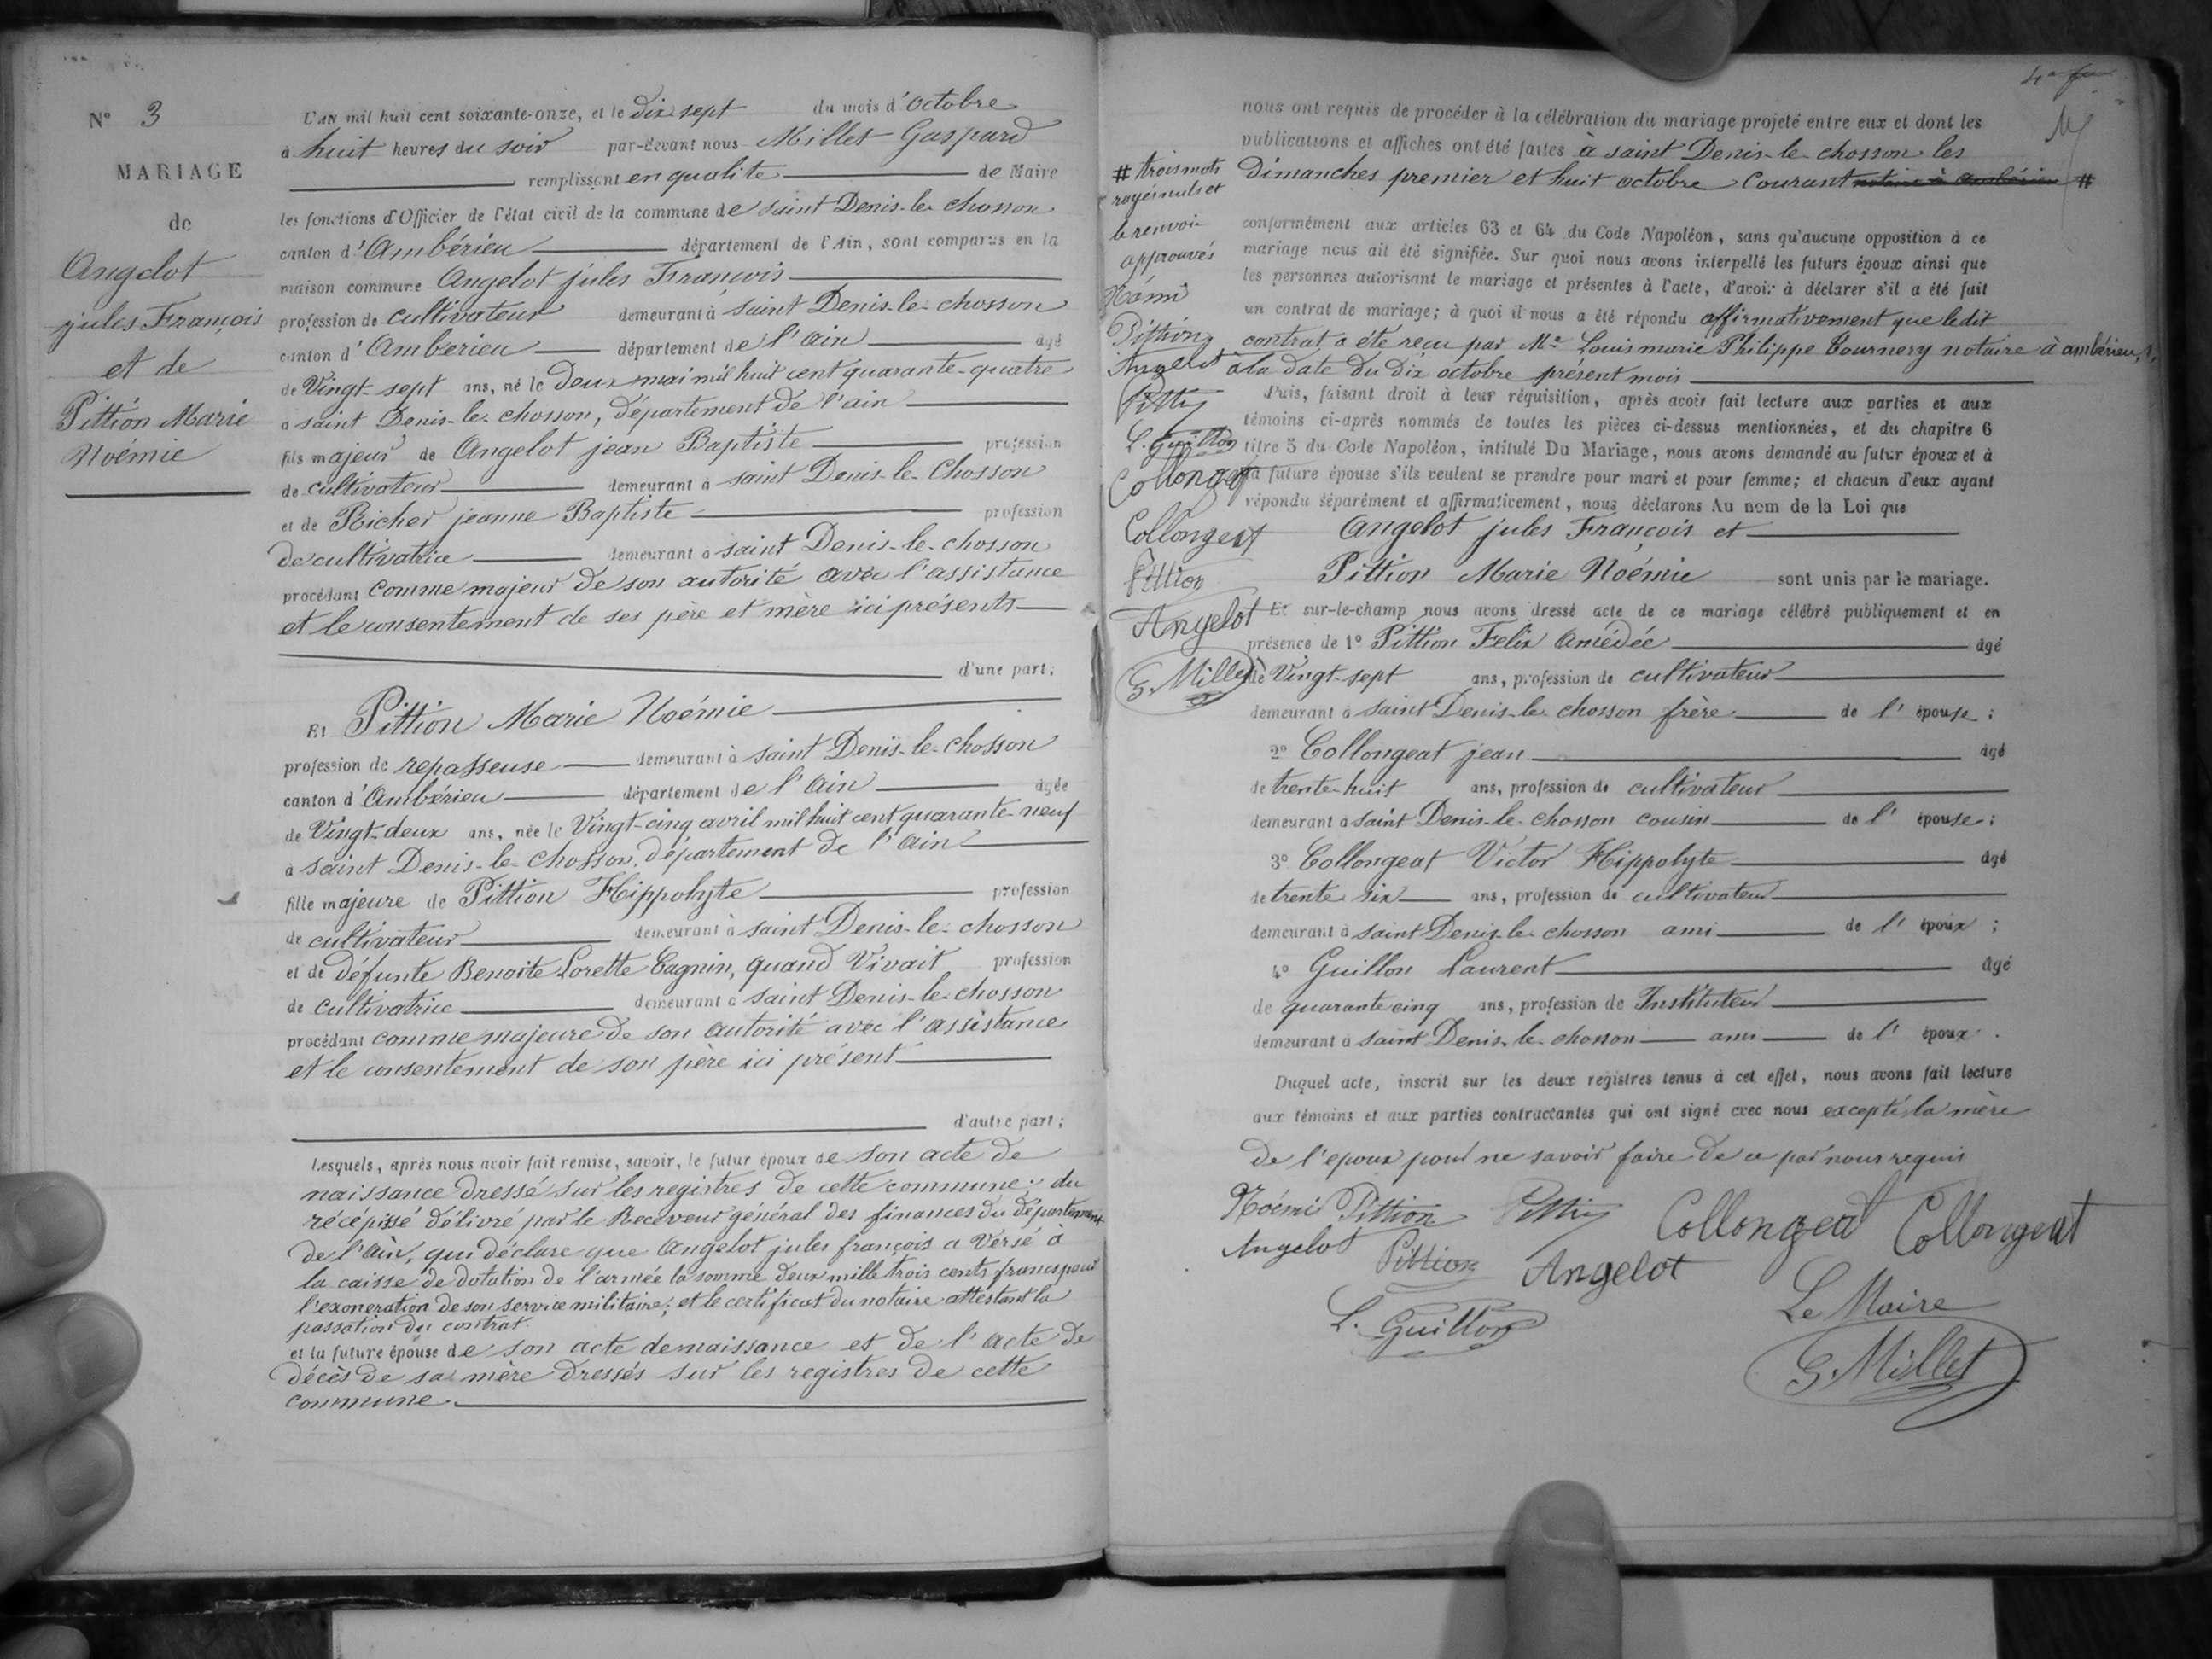 N° 3
MARIAGE
de
Angelot
jules François
et de
Pittion Marie
Noémie
L'AN mil huit cent soixante-onze, et le dix sept du mois d'octobre
à huit heures du soir par-devant nous Millet Gaspard
remplissant en qualité de Maire
les fonctions d'Officier de l'état civil de la commune de saint Denis-le-chosson
canton d'Ambérieu département de l'Ain, sont comparus en la
maison commune Angelot jules François
profession de cultivateur demeurant à saint Denis-le-chosson
canton d'Amberieu département de l'ain âgé
de Vingt-sept ans, né le deux mai mil huit cent quarante-quatre
à saint Denis-le-chosson, département de l'ain
fils majeur de Angelot jean Baptiste profession
de cultivateur demeurant à saint Denis-le-Chosson
et de Richer jeanne Baptiste profession
de cultivatrice demeurant à saint Denis-le-chosson
procédant comme majeur de son autorité avec l'assistance
et le consentement de ses père et mère ici présents
d'une part;
Et Pittion Marie Noémie
profession de repasseuse demeurant à saint Denis-le-chosson
canton d'Ambérieu département de l'ain âgée
de Vingt-deux ans, née le Vingt-cinq avril mil huit cent quarante-neuf
à saint Denis-le-chosson, département de l'ain
fille majeure de Pittion Hippolyte profession
de cultivateur demeurant à saint Denis-le-chosson
et de défunte Benoite Lorette Cagnin, quand Vivait profession
de cultivatrice demeurant à saint Denis-le-chosson
procédant comme majeure de son autorité avec l'assistance
et le consentement de son père ici présent
d'autre part;
Lesquels, après nous avoir fait remise, savoir, le futur époux de son acte de
naissance dressé sur les registres de cette commune; du
récépissé délivré par le Receveur général des finances du département
de l'ain, qui déclare que Angelot jules françois a Versé à
la caisse de dotation de l'armée la somme deux mille trois cents francs pour
l'exoneration de son service militaire; et le certificat du notaire attestant la
passation du contrat.
et la future épouse de son acte de naissance et de l'acte de
décès de sa mère dressés sur les registres de cette
commune.
nous ont requis de procéder à la célébration du mariage projeté entre eux et dont les
publications et affiches ont été faites à saint Denis-le-chosson les
Dimanches premier et huit octobre Courant notaire à ambérieu #
conformément aux articles 63 et 64 du Code Napoléon, sans qu'aucune opposition à ce
mariage nous ait été signifiée. Sur quoi nous avons interpellé les futurs époux ainsi que
les personnes autorisant le mariage et présentes à l'acte, d'avoir à déclarer s'il a été fait
un contrat de mariage; à quoi il nous a été répondu affirmativement que ledit
contrat a été reçu par Me Louis marie Philippe Tournery notaire à ambérieu,
à la date du dix octobre présent mois
Puis, faisant droit à leur réquisition, après avoir fait lecture aux parties et aux
témoins ci-après nommés de toutes les pièces ci-dessus mentionnées, et du chapitre 6
titre 5 du Code Napoléon, intitulé Du Mariage, nous avons demandé au futur époux et à
la future épouse s'ils veulent se prendre pour mari et pour femme; et chacun d'eux ayant
répondu séparément et affirmativement, nous déclarons Au nom de la Loi que
Angelot jules François et
Pittion Marie Noémie sont unis par le mariage.
Et sur-le-champ nous avons dressé acte de ce mariage célébré publiquement et en
présence de 1° Pittion Felix Amédée âgé
de Vingt-sept ans, profession de cultivateur
demeurant à saint Denis-le-chosson frère de l'épouse;
2° Collongeat jean âgé
de trente-huit ans, profession de cultivateur
demeurant à saint Denis-le-chosson cousin de l'épouse;
3° Collongeat Victor Hippolyte âgé
de trente six ans, profession de cultivateur
demeurant à saint Denis-le-chosson ami de l'époux;
4° Guillon Laurent âgé
de quarante cinq ans, profession de Instituteur
demeurant à saint Denis-le-chosson ami de l'époux.
Duquel acte, inscrit sur les deux registres tenus à cet effet, nous avons fait lecture
aux témoins et aux parties contractantes qui ont signé avec nous excepté la mère
de l'epoux pour ne savoir faire de ce par nous requis
Noémi Pittion Pittion Collongeat Collongeat
Angelot Pittion Angelot
L. Guillon Le Maire
G. Millet
# trois mots
rayés nuls et
le renvoi
approuvés
Noémi
Pittion
Angelot
Pittion
L. Guillon
Collongeat
Collongeat
Pittion
Angelot
G. Millet